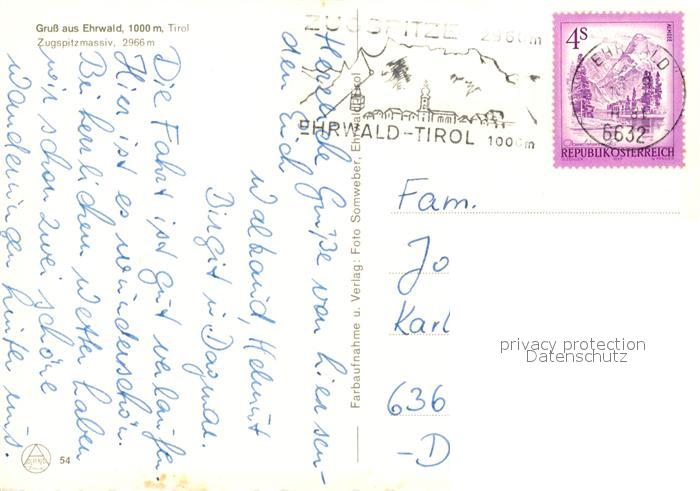 Gruß aus Ehrwald, 1000 m, Tirol
Zugspitzmassiv, 2966 m
ZUGSPITZE 2966m
EHRWALD-TIROL 1000m
4S
ALMSEE
REPUBLIK ÖSTERREICH
EHRWALD
6632
Die Fahrt ist gut verlaufen.
Hier ist es wunderschön.
Bei herrlichem Wetter haben
wir schon zwei schöne
Wanderungen hinter uns.
Herzliche Grüße von hier sen-
den Euch
Waltraud, Helmut
Birgit u Dagmar.
Farbaufnahme u. Verlag: Foto Somweber, Ehrwald, Tirol
Fam.
Jo
Karl
636
-D
privacy protection
Datenschutz
54